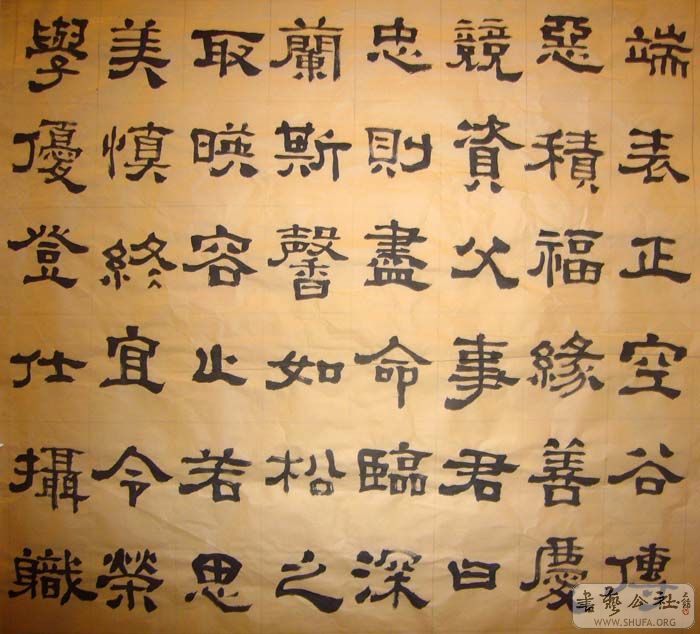 端表正空谷傳
惡積福緣善慶
競資父事君曰
忠則盡命臨深
蘭斯馨如松之
取暎容止若思
美慎終宜令榮
學優登仕攝職
書藝公社
WWW.SHUFA.ORG